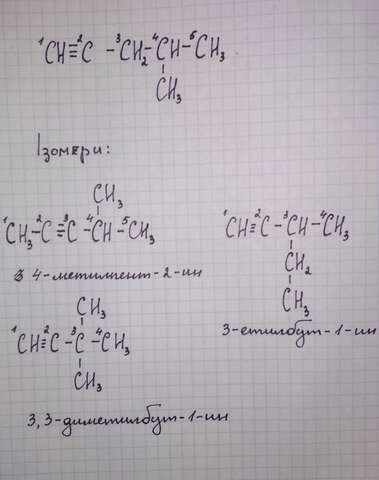 ¹CH≡²C -³CH₂-⁴CH-⁵CH₃
CH₃
Ізомери:
CH₃
¹CH₃-²C≡³C-⁴CH-⁵CH₃
4-метилпент-2-ин
¹CH≡²C-³CH-⁴CH₃
CH₂
CH₃
3-етилбут-1-ин
CH₃
¹CH≡²C-³C-⁴CH₃
CH₃
3,3-диметилбут-1-ин